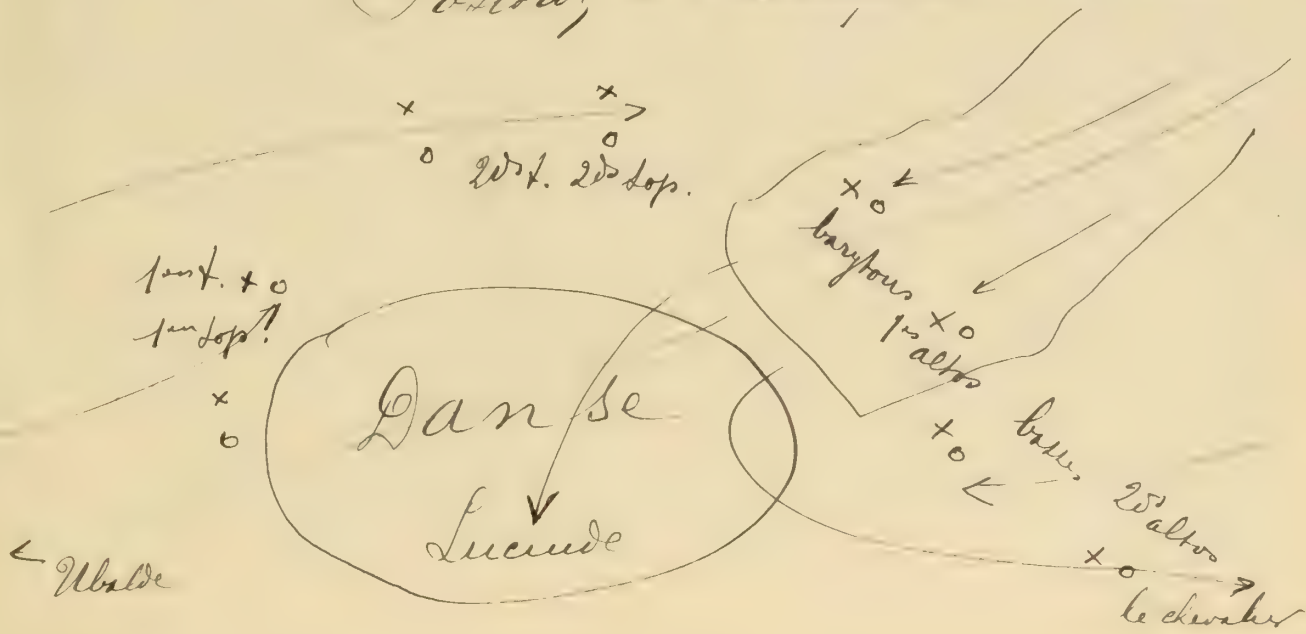 2ds t. 2ds sop.
1ers t.
1ers sop.
barytons
1rs altos
basses 2ds altos
Danse
Lucinde
Ubalde
le chevalier